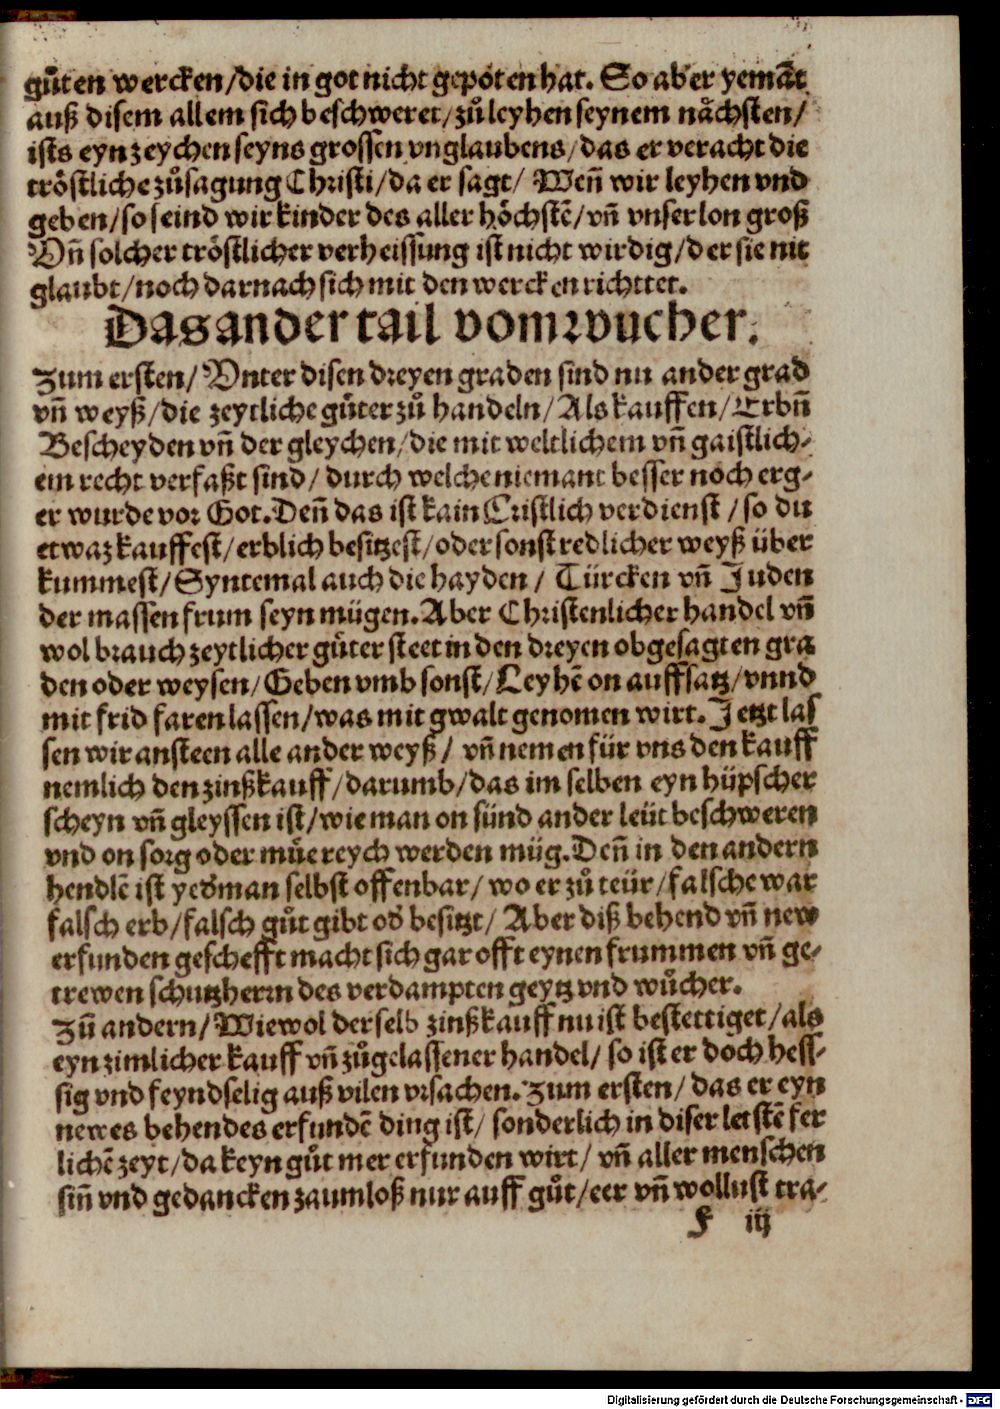 guͦten wercken/die in got nicht gepoten hat. So aber yemāt
auß disem allem sich beschweret/zuͦ leyhen seynem naͤchsten/
ists eyn zeychen seyns grossen vnglaubens/das er veracht die
troͤstliche zuͦsagung Christi/da er sagt/ Wen̄ wir leyhen vnd
geben/so seind wir kinder des aller hoͤchstē/vn̄ vnser lon groß
Vn̄ solcher troͤstlicher verheissung ist nicht wirdig/der sie nit
glaubt/noch darnach sich mit den wercken richttet.
Das ander tail vom wucher.
Zum ersten/ Vnter disen dreyen graden sind nu ander grad
vn̄ weyß/die zeytliche guͤter zuͦ handeln/Als kauffen/Erbn̄
Bescheyden vn̄ der gleychen/die mit weltlichem vn̄ gaistlich-
em recht verfaßt sind/durch welche niemant besser noch erg-
er wurde vor Got. Den̄ das ist kain Cristlich verdienst/so du
etwaz kauffest/erblich besitzest/oder sonst redlicher weyß über
kummest/Syntemal auch die hayden/ Türcken vn̄ Juden
der massen frum seyn mügen. Aber Christenlicher handel vn̄
wol brauch zeytlicher guͤter steet in den dreyen obgesagten gra
den oder weysen/Geben vmb sonst/Leyhē on auffsatz/vnnd
mit frid faren lassen/was mit gwalt genomen wirt. Jetzt las
sen wir ansteen alle ander weyß/ vn̄ nemen für vns den kauff
nemlich den zinßkauff/darumb/das im selben eyn hüpscher
scheyn vn̄ gleyssen ist/wie man on sünd ander leüt beschweren
vnd on sorg oder muͤe reych werden müg. Den̄ in den andern
hendlē ist yed̕man selbst offenbar/wo er zuͦ teür/falsche war
falsch erb/falsch guͦt gibt od̕ besitzt/ Aber diß behend vn̄ new
erfunden geschefft macht sich gar offt eynen frummen vn̄ ge-
trewen schutzherrn des verdampten geytz vnd wuͦcher.
Zū andern/Wiewol der selb zinßkauff nu ist bestettiget/als
eyn zimlicher kauff vn̄ zuͦgelassener handel/ so ist er doch hess-
sig vnd feyndselig auß vilen vrsachen. Zum ersten/ das er eyn
newes behendes erfundē ding ist/ sonderlich in diser letstē fer
lichē zeyt/da keyn guͦt mer erfunden wirt/ vn̄ aller menschen
sin̄ vnd gedancken zaumloß nur auff guͦt/eer vn̄ wollust tra-
F iij
Digitalisierung gefördert durch die Deutsche Forschungsgemeinschaft - DFG